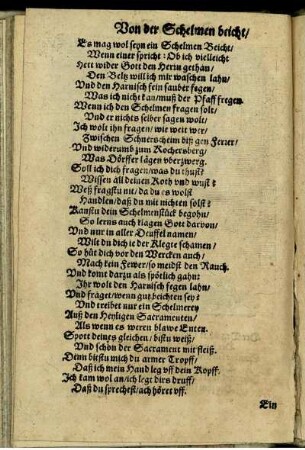 Von der Schelmen beicht/
Es mag wol seyn ein Schelmen Beicht/
Wenn einer spricht: Ob ich vielleicht
Hett wider Gott den Herrn gethan/
Den Beltz will ich mir waschen lahn/
Vnd den Harnisch fein sauber fegen/
Was ich nicht kan/ muß der Pfaff fregen.
Wenn ich den Schelmen fragen solt/
Vnd er nichts selber sagen wolt/
Ich wolt ihn fragen/ wie weit wer/
Zwischen Schnersheim biß gen Ferier/
Vnd widerumb zum Kochersberg/
Was Dörffer lägen vberzwerg.
Soll ich dich fragen/ was du thust?
Wissen all deinen Koth vnd wust?
Weß fragstu nit/ da du es wolst
Handlen/ daß du mit nichten solst?
Kanstu dein Schelmenstück begohn/
So lerns auch klagen Gott darvon/
Vnd nur in aller Deuffel namen/
Wilt du dich je der Klegte schamen/
So hüt dich vor den Wercken auch/
Mach kein Fewer/ so meidst den Rauch.
Vnd komt darzu als spötlich gahn:
Ihr wolt den Harnisch fegen lahn/
Vnd fraget/ wenn gut beichten sey?
Vnd treibet nur ein Schelmerey
Auß den Heyligen Sacramenten/
Als wenn es weren blawe Enten.
Spott deines gleichen/ bistu weiß/
Vnd schon der Sacrament mit fleiß.
Denn biestu mich du armer Tropff/
Daß ich mein Hand leg vff dein Kopff.
Ich kam wol an/ ich legt dirs druff/
Daß du sprechest/ ach höret vff.
Ein